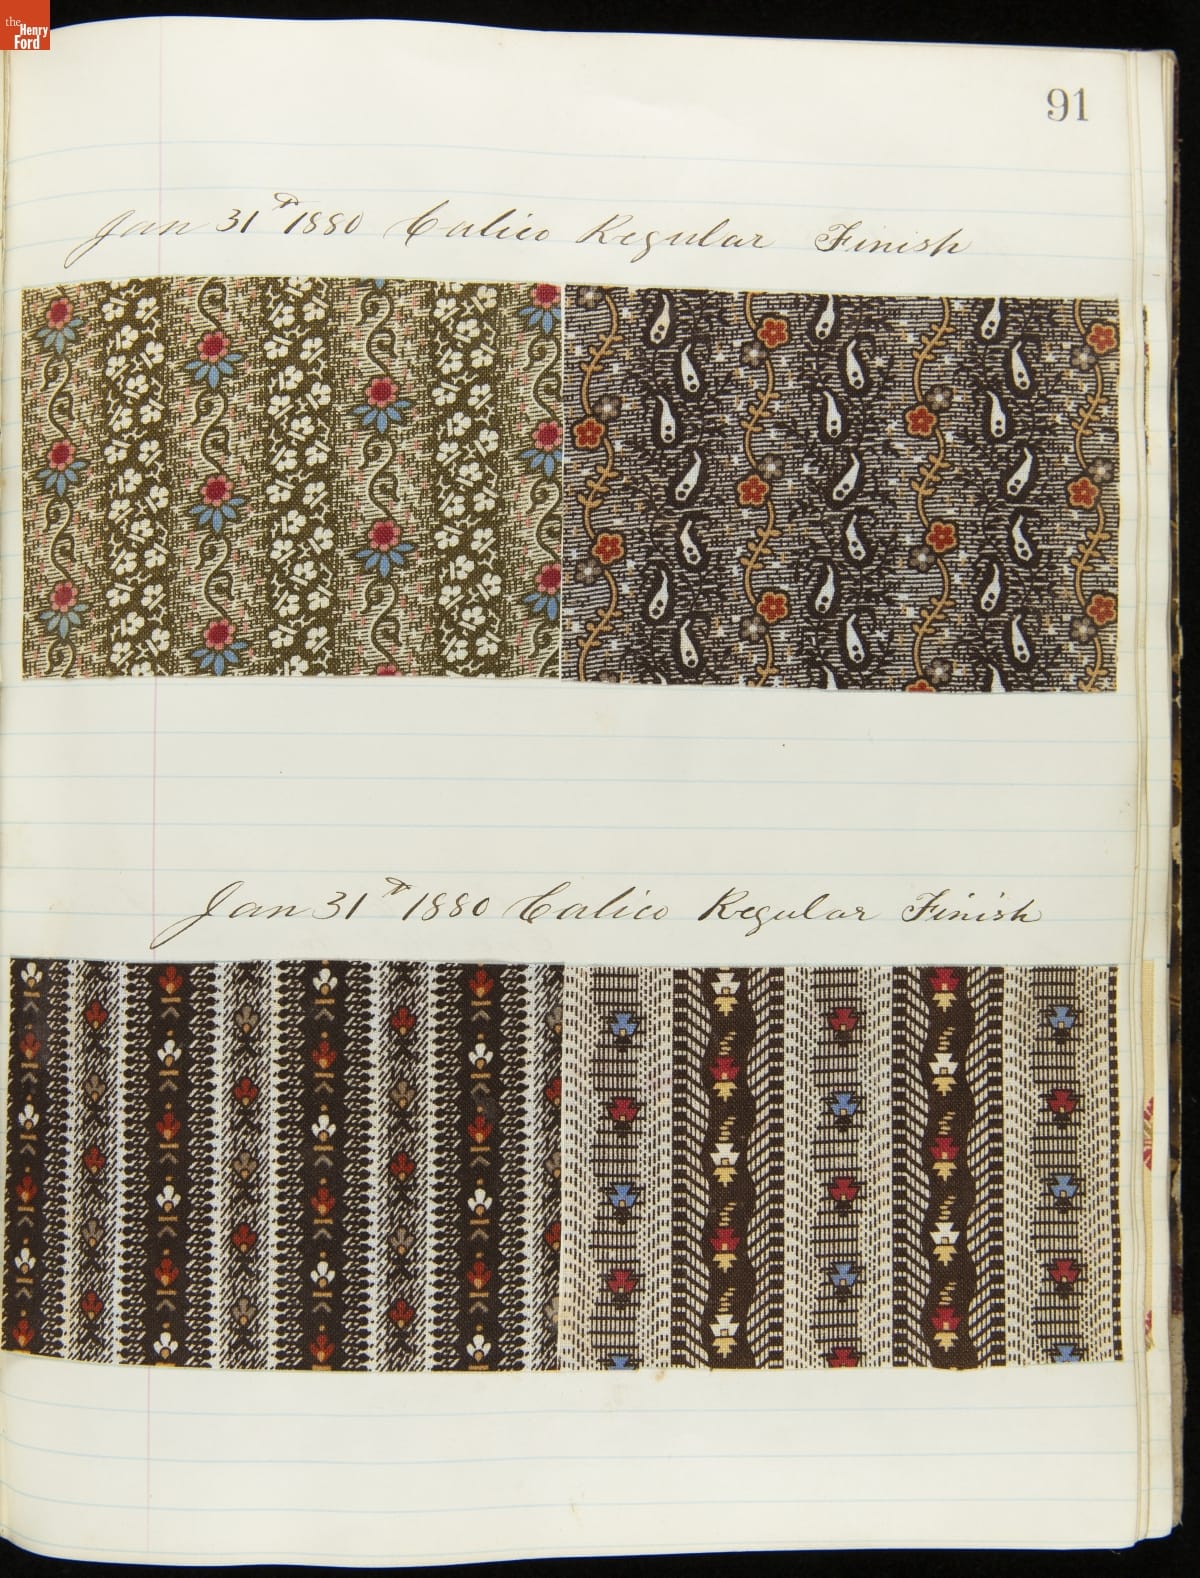 the
Henry
Ford
91
Jan 31st 1880 Calico Regular Finish
Jan 31st 1880 Calico Regular Finish